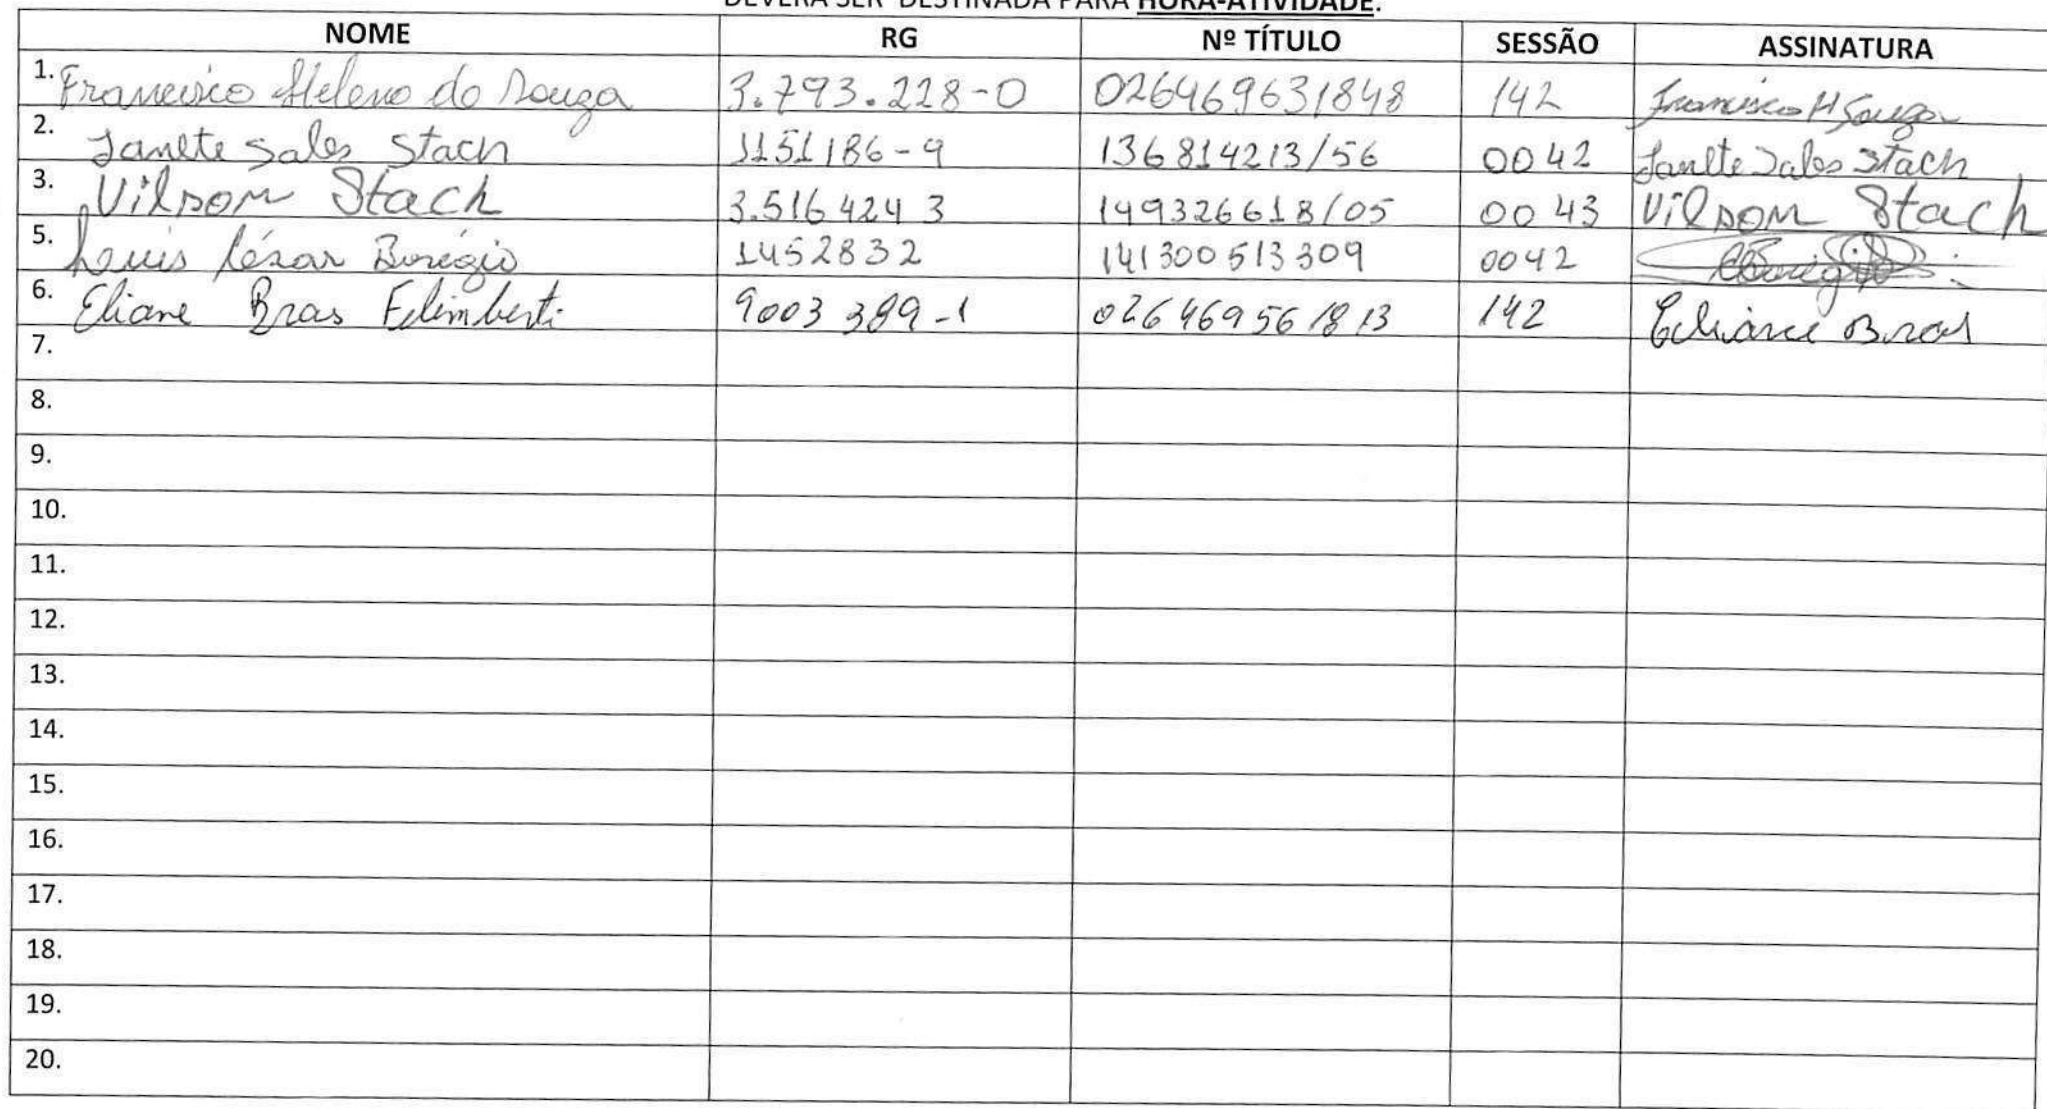 DEVERÁ SER DESTINADA PARA HORA-ATIVIDADE.
NOME RG Nº TÍTULO SESSÃO ASSINATURA
1. Francisco Heleno do Souza 3.793.228-0 026469631848 142 Francisco H Souza
2. Janete Sales Stach 1151186-9 136814213/56 0042 Janete Sales Stach
3. Vilson Stach 3.5164243 149326618/05 0043 Vilson Stach
5. Luis Cézar 1452832 141300513309 0042
6. Eliane Bras 9003389-1 026469561813 142 Eliane Bras
7.
8.
9.
10.
11.
12.
13.
14.
15.
16.
17.
18.
19.
20.